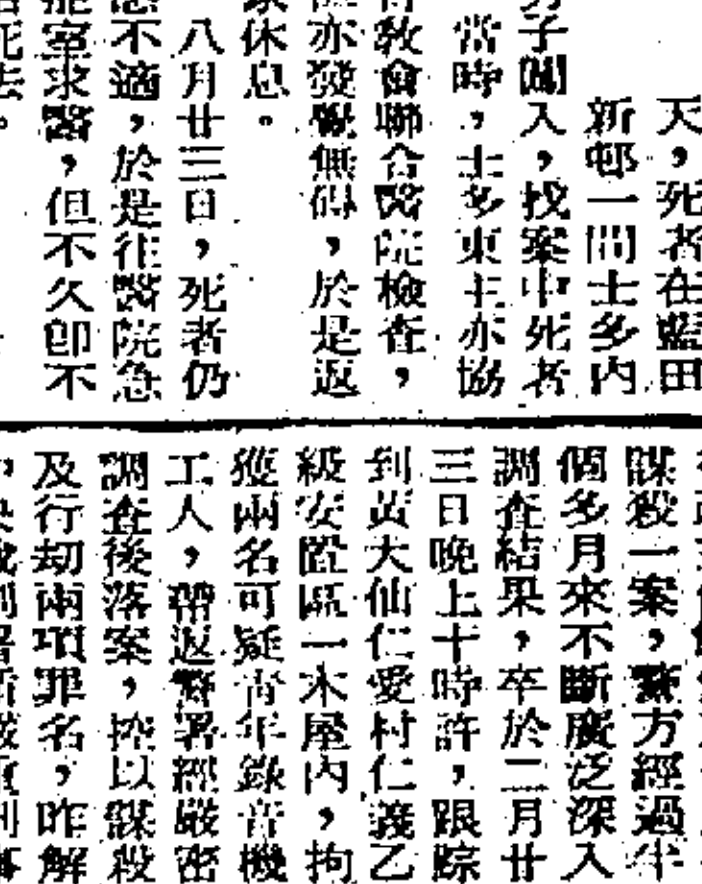 天，死者在藍田
新邨一間士多內
男子闖入，找案中死者
當時，士多東主亦協
教會聯合醫院檢查，
亦發覺無碍，於是返
休息。
八月廿三日，死者仍
不適，於是往醫院急
室求醫，但不久卽不
死去。
謀殺一案，警方經過半
個多月來不斷廣泛深入
調查結果，卒於二月廿
三日晚上十時許，跟踪
到黃大仙仁愛村仁義乙
級安置區一木屋內，拘
獲兩名可疑青年錄音機
工人，帶返警署經嚴密
調查後落案，控以謀殺
及行刼兩項罪名，昨解